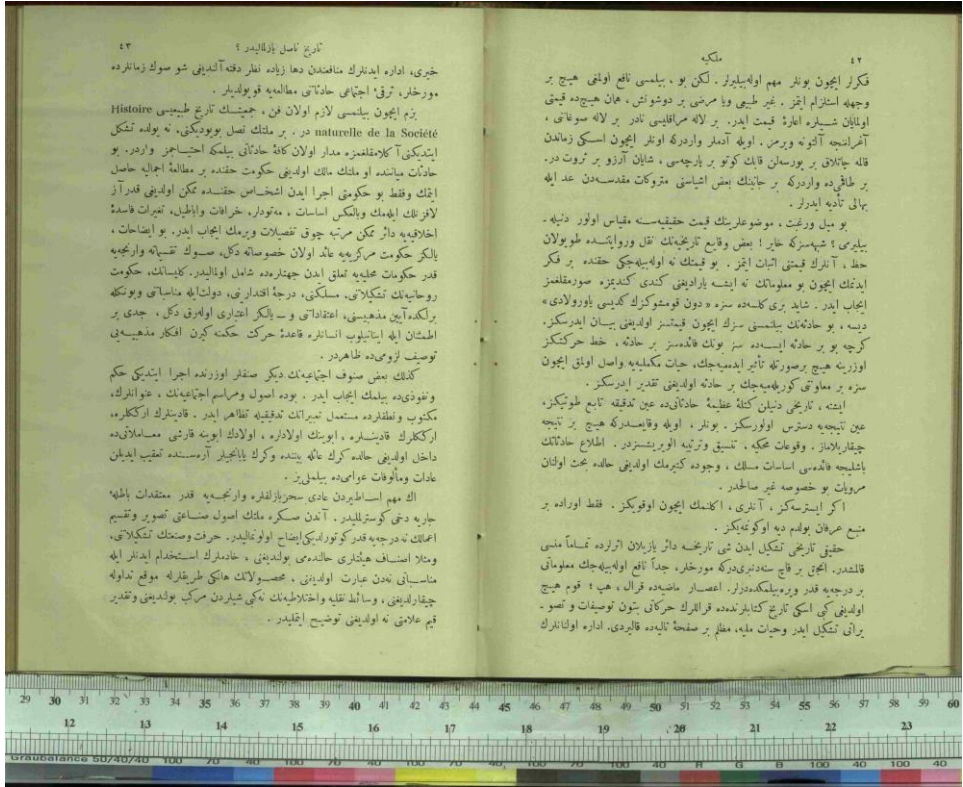 ٤٢
ملكيه
فكرلر ايچون بونلر مهم اوله‌بيليرلر . لكن بو ، بيلمسى نافع اولمنى هيچ بر
وجهله استلزام ايتمز . غير طبيعى ويا مرضى بر دوشونش ، همان هيچ‌ده قيمتى
اولمايان شيلره اعارۀ قيمت ايدر . بر لاله مراقليسى نادر بر لاله صوغانى ،
آغرلنجه آلتونه ويرمز . اويله آدملر واردركه اونلر ايچون اسكى زماندن
قاله چاتلاق بر پورسه‌لن قابك كوتو بر پارچه‌سى ، شايان آرزو بر ثروت در.
بر طاقمى‌ده واردركه بر جانينك بعض اشياسنى متروكات مقدسه‌دن عد ايله
بهالى تأديه ايدرلر .
بو ميل ورغبت ، موضوعلرينك قيمت حقيقيه‌سنه مقياس اولور دنيله ـ
بيليرمى ؟ شبهه‌سزكه خاير ! بعض وقايع تاريخيه‌نك نقل وروايتنده طويولان
حظ ، آنلرك قيمتنى اثبات ايتمز . بو قيمتك نه اوله‌بيله‌جكى حقنده بر فكر
ايدنمك ايچون بو معلوماتك نه ايشه يارايديغنى كندى كنديمزه صورمقلغمز
ايجاب ايدر . شايد برى كلسه‌ده سزه «دون قومشوكزك كديسى ياورولادى»
ديسه ، بو حادثه‌نك بيلنمسى سزك ايچون قيمتسز اولديغنى بيان ايدرسكز.
كرچه بو بر حادثه ايسه‌ده سز بونك فائده‌سز بر حادثه ، خط حركتكز
اوزرينه هيچ برصورتله تأثير ايده‌ميه‌جك، حيات مكمليه‌يه واصل اولمق ايچون
سزه بر معاونتى كوريله‌ميه‌جك بر حادثه اولديغنى تقدير ايدرسكز .
ايشته ، تاريخى دنيلن كتلۀ عظيمۀ حادثاتى‌ده عين تدقيقه تابع طوتيكز،
عين نتيجه‌يه دسترس اولورسكز . بونلر ، اويله وقايعدركه هيچ بر نتيجه
چيقاريلاماز . وقوعات محكيه . تنسيق وترتيبه الويريشسزدر . اطلاع حادثاتك
باشليجه فائده‌سى اساسات مسلك ، وجوده كتيرمك اولديغى حالده بحث اولنان
مرويات بو خصوصه غير صالحدر .
اكر ايسترسه‌كز ، آنلرى ، اكلنمك ايچون اوقويكز . فقط اوراده بر
منبع عرفان بولدم ديه اوكونمه‌يكز .
حقيقى تاريخى تشكيل ايدن شى تاريخه دائر يازيلان اثرلرده تماماً منسى
قالمشدر. انجق بر قاچ سنه‌دنبرى‌دركه مورخلر، جداً نافع اوله‌بيله‌جك معلوماتى
بر درجه‌يه قدر ويره‌بيلمكده‌درلر. اعصار ماضيه‌ده قرال ، هپ ؛ قوم هيچ
اولديغى كبى اسكى تاريخ كتابلرنده‌ده قراللرك حركاتى بتون توصيفات و تصو ـ
يراتى تشكيل ايدر وحيات مليه، مظلم بر صفحۀ تاليه‌ده قاليردى. اداره اولنانلرك
تاريخ ناصل يازلمليدر ؟
٤٣
خيرى، اداره ايدنلرك منافعندن دها زياده نظر دقته آلنديغى شو صوك زمانلرده
مورخلر، ترقئ اجتماعى حادثاتى مطالعه‌يه قويولديلر .
بزم ايچون بيلنمسى لازم اولان فن ، جمعيتك تاريخ طبيعيسى Histoire
naturelle de la Société در . بر ملتك نصل بويوديكنى، نه يولده تشكل
ايتديكنى آ كلامقلغمزه مدار اولان كافۀ حادثاتى بيلمكه احتياجمز واردر. بو
حادثات مياننده او ملتك مالك اولديغى حكومت حقنده بر مطالعۀ اجماليه حاصل
ايتمك وفقط بو حكومتى اجرا ايدن اشخاص حقنده ممكن اولديغى قدر آز
لافزنلك ايله‌مك وبالعكس اساسات ، مه‌تودلر، خرافات واباطيل، تغيرات فاسدۀ
اخلاقيه‌يه دائر ممكن مرتبه چوق تفصيلات ويرمك ايجاب ايدر. بو ايضاحات ،
يالكز حكومت مركزيه‌يه عائد اولان خصوصاته دكل، صوك تقسيماته وارنجه‌يه
قدر حكومات محليه‌يه تعلق ايدن جهتلره‌ده شامل اولماليدر. كليسانك، حكومت
روحانيه‌نك تشكيلاتى، مسلكنى، درجۀ اقتدارينى، دولت‌ايله مناسباتى وبونكله
برلكده آيين مذهبيسنى، اعتقاداتنى و ـ يالكز اعتبارى اوله‌رق دكل ، جدى بر
اطمئنان ايله اينانيلوب انسانلره قاعدۀ حركت حكمنه كيرن افكار مذهبيه‌يى
توصيف لزومى‌ده ظاهردر .
كذلك بعض صنوف اجتماعيه‌نك ديكر صنفلر اوزرنده اجرا ايتديكى حكم
ونفوذى‌ده بيلمك ايجاب ايدر . بوده اصول ومراسم اجتماعيه‌نك ، عنوانلرك،
مكتوب ونطقلرده مستعمل تعبيراتك تدقيقيله تظاهر ايدر . قادينلرك ارككلره،
ارككلرك قادينلره ، ابوينك اولاده ، اولادك ابوينه قارشى معاملاتى‌ده
داخل اولديغى حالده كرك عائله بيننده وكرك يابانجيلر آره‌سنده تعقيب ايديلن
عادات ومألوفات عوامى‌ده بيلملى‌يز .
اك مهم اساطيردن عادى سحربازلقلره وارنجه‌يه قدر معتقدات باطلۀ
جاريه دخى كوسترلمليدر . آندن صكره ملتك اصول صناعتى تصوير وتقسيم
اعمالك نه‌درجه‌يه قدر كوتورلديكى ايضاح اولونماليدر. حرفت وصنعتك تشكيلاتى،
ومثلا اصناف هيئتلرى حالنده‌مى بولنديغى ، خادملرك استخدام ايدنلر ايله
مناسباتى نه‌دن عبارت اولديغى ، محصولاتك هانكى طريقلرله موقع تداوله
چيقارلديغى، وسائط نقليه واختلاطيه‌نك نه‌كى شيلردن مركب بولنديغى وتقدير
قيم علامتى نه اولديغى توضيح ايتمليدر .
29 30 31 32 33 34 35 36 37 38 39 40 41 42 43 44 45 46 47 48 49 50 51 52 53 54 55 56 57 58 59 60
12 13 14 15 16 17 18 19 20 21 22 23
Graubalance 50/40/40 100 70 40 100 70 40 100 70 40 100 70 40 100 70 40 R G B 100 40 100 40